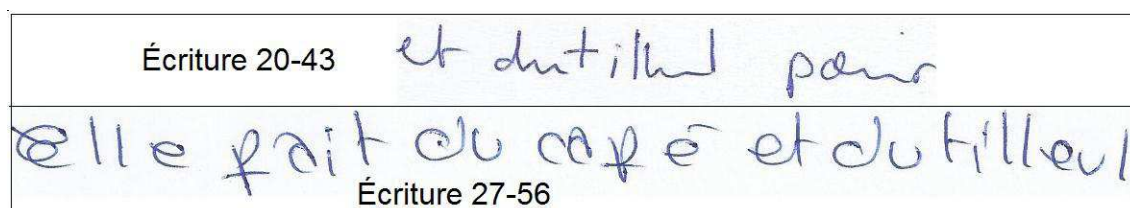 Écriture 20-43 et du tilleul pour
elle fait du café et du tilleul
Écriture 27-56